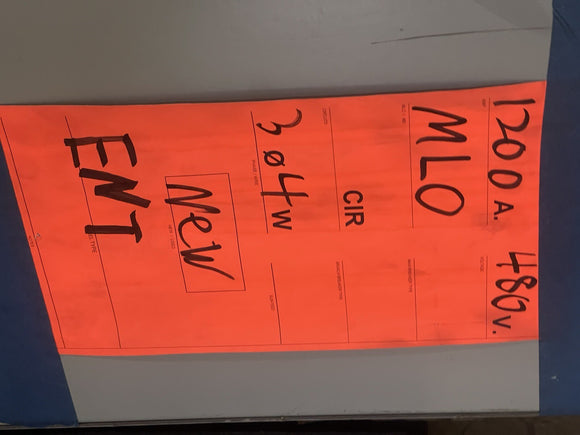 1200 A. 480 V.
MLO
CIR
3 Ø 4 W
New
ENT